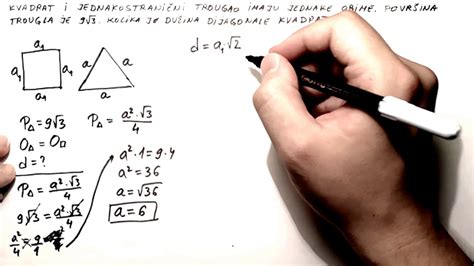 KVADRAT I JEDNAKOSTRANIČNI TROUGAO IMAJU JEDNAKE OBIME. POVRŠINA
TROUGLA JE 9√3. KOLIKA JE DUŽINA DIJAGONALE KVADRATA
a₁ a₁ a a
a₁ a
d = a₁√2
P△ = 9√3 P△ = a²·√3/4
O△ = O□
d = ?
P△ = a²·√3/4
9√3 = a²·√3/4
a²/4 = 9/1
a²·1 = 9·4
a² = 36
a = √36
a = 6